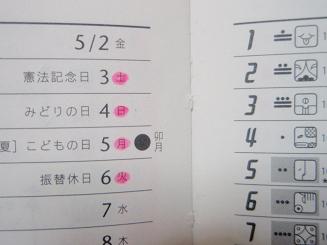 5/2 金
憲法記念日 3 土
みどりの日 4 日
夏］こどもの日 5 月 卯月
振替休日 6 火
7 水
8 木
1
2
3
4
5
6
7